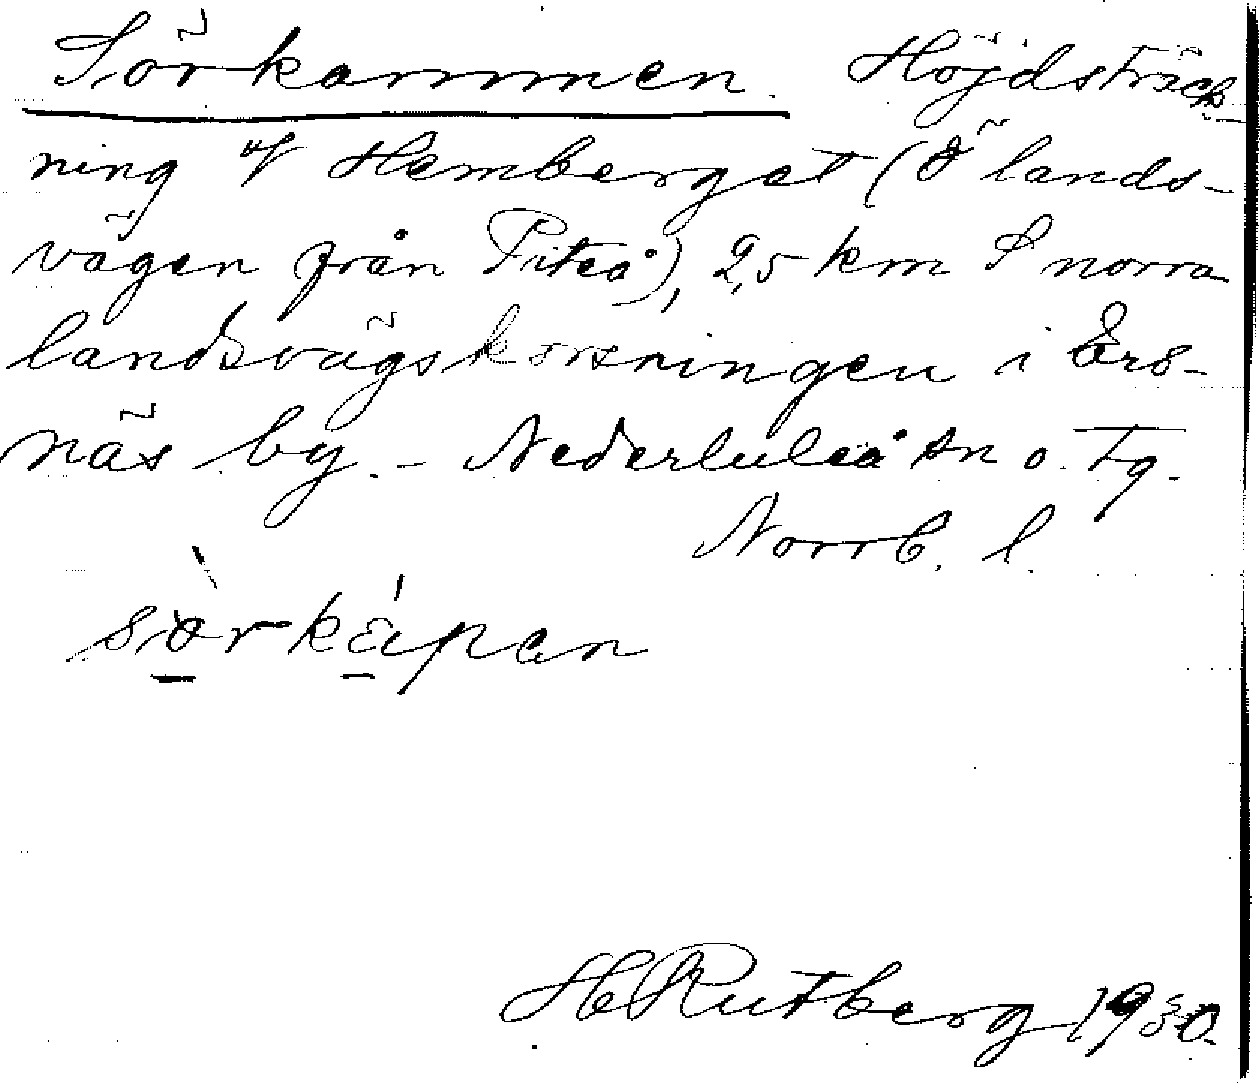 Sörkammen. Höjdsträck-
ning å Hemberget (Ö lands-
vägen från Piteå), 2,5 km S norra
landsvägskorsningen i Ers-
näs by. - Nederluleå sn o. tg.
Norrb. l.
H Rutberg 1930.